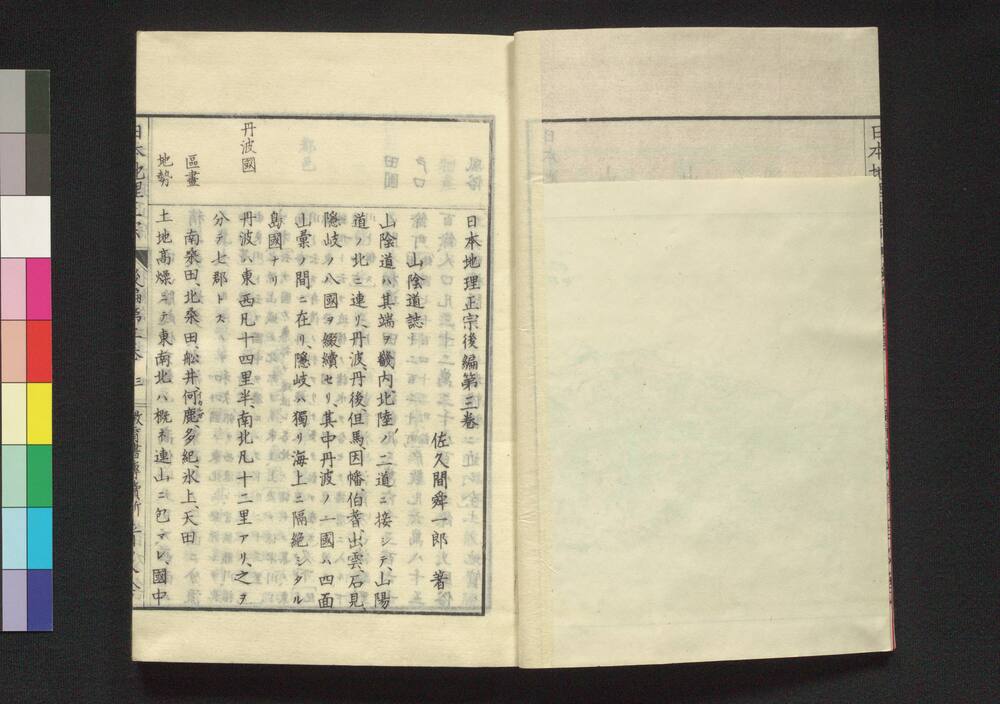 日本地理正宗後編第三卷
佐久間舜一郎 著
山陰道誌
山陰道ハ其端ヲ畿内、北陸ノ二道ニ接シテ、山陽
道ノ北ニ連リ、丹波、丹後、但馬、因幡、伯耆、出雲、石見、
隱岐ノ八國ヲ綴續セリ其中丹波ノ一國ハ四面
山彙ノ間ニ在リ、隱岐ハ獨リ海上ニ隔絶シタル
島國ナリ
丹波國
丹波ハ東西凡十四里半、南北凡十二里アリ、之ヲ
分テ七郡トス
區畫
南桑田、北桑田、舩井、何鹿、多紀、氷上、天田
地勢
土地高燥ニテ東南北ハ概ネ連山ニ包マレ、國中
日本地